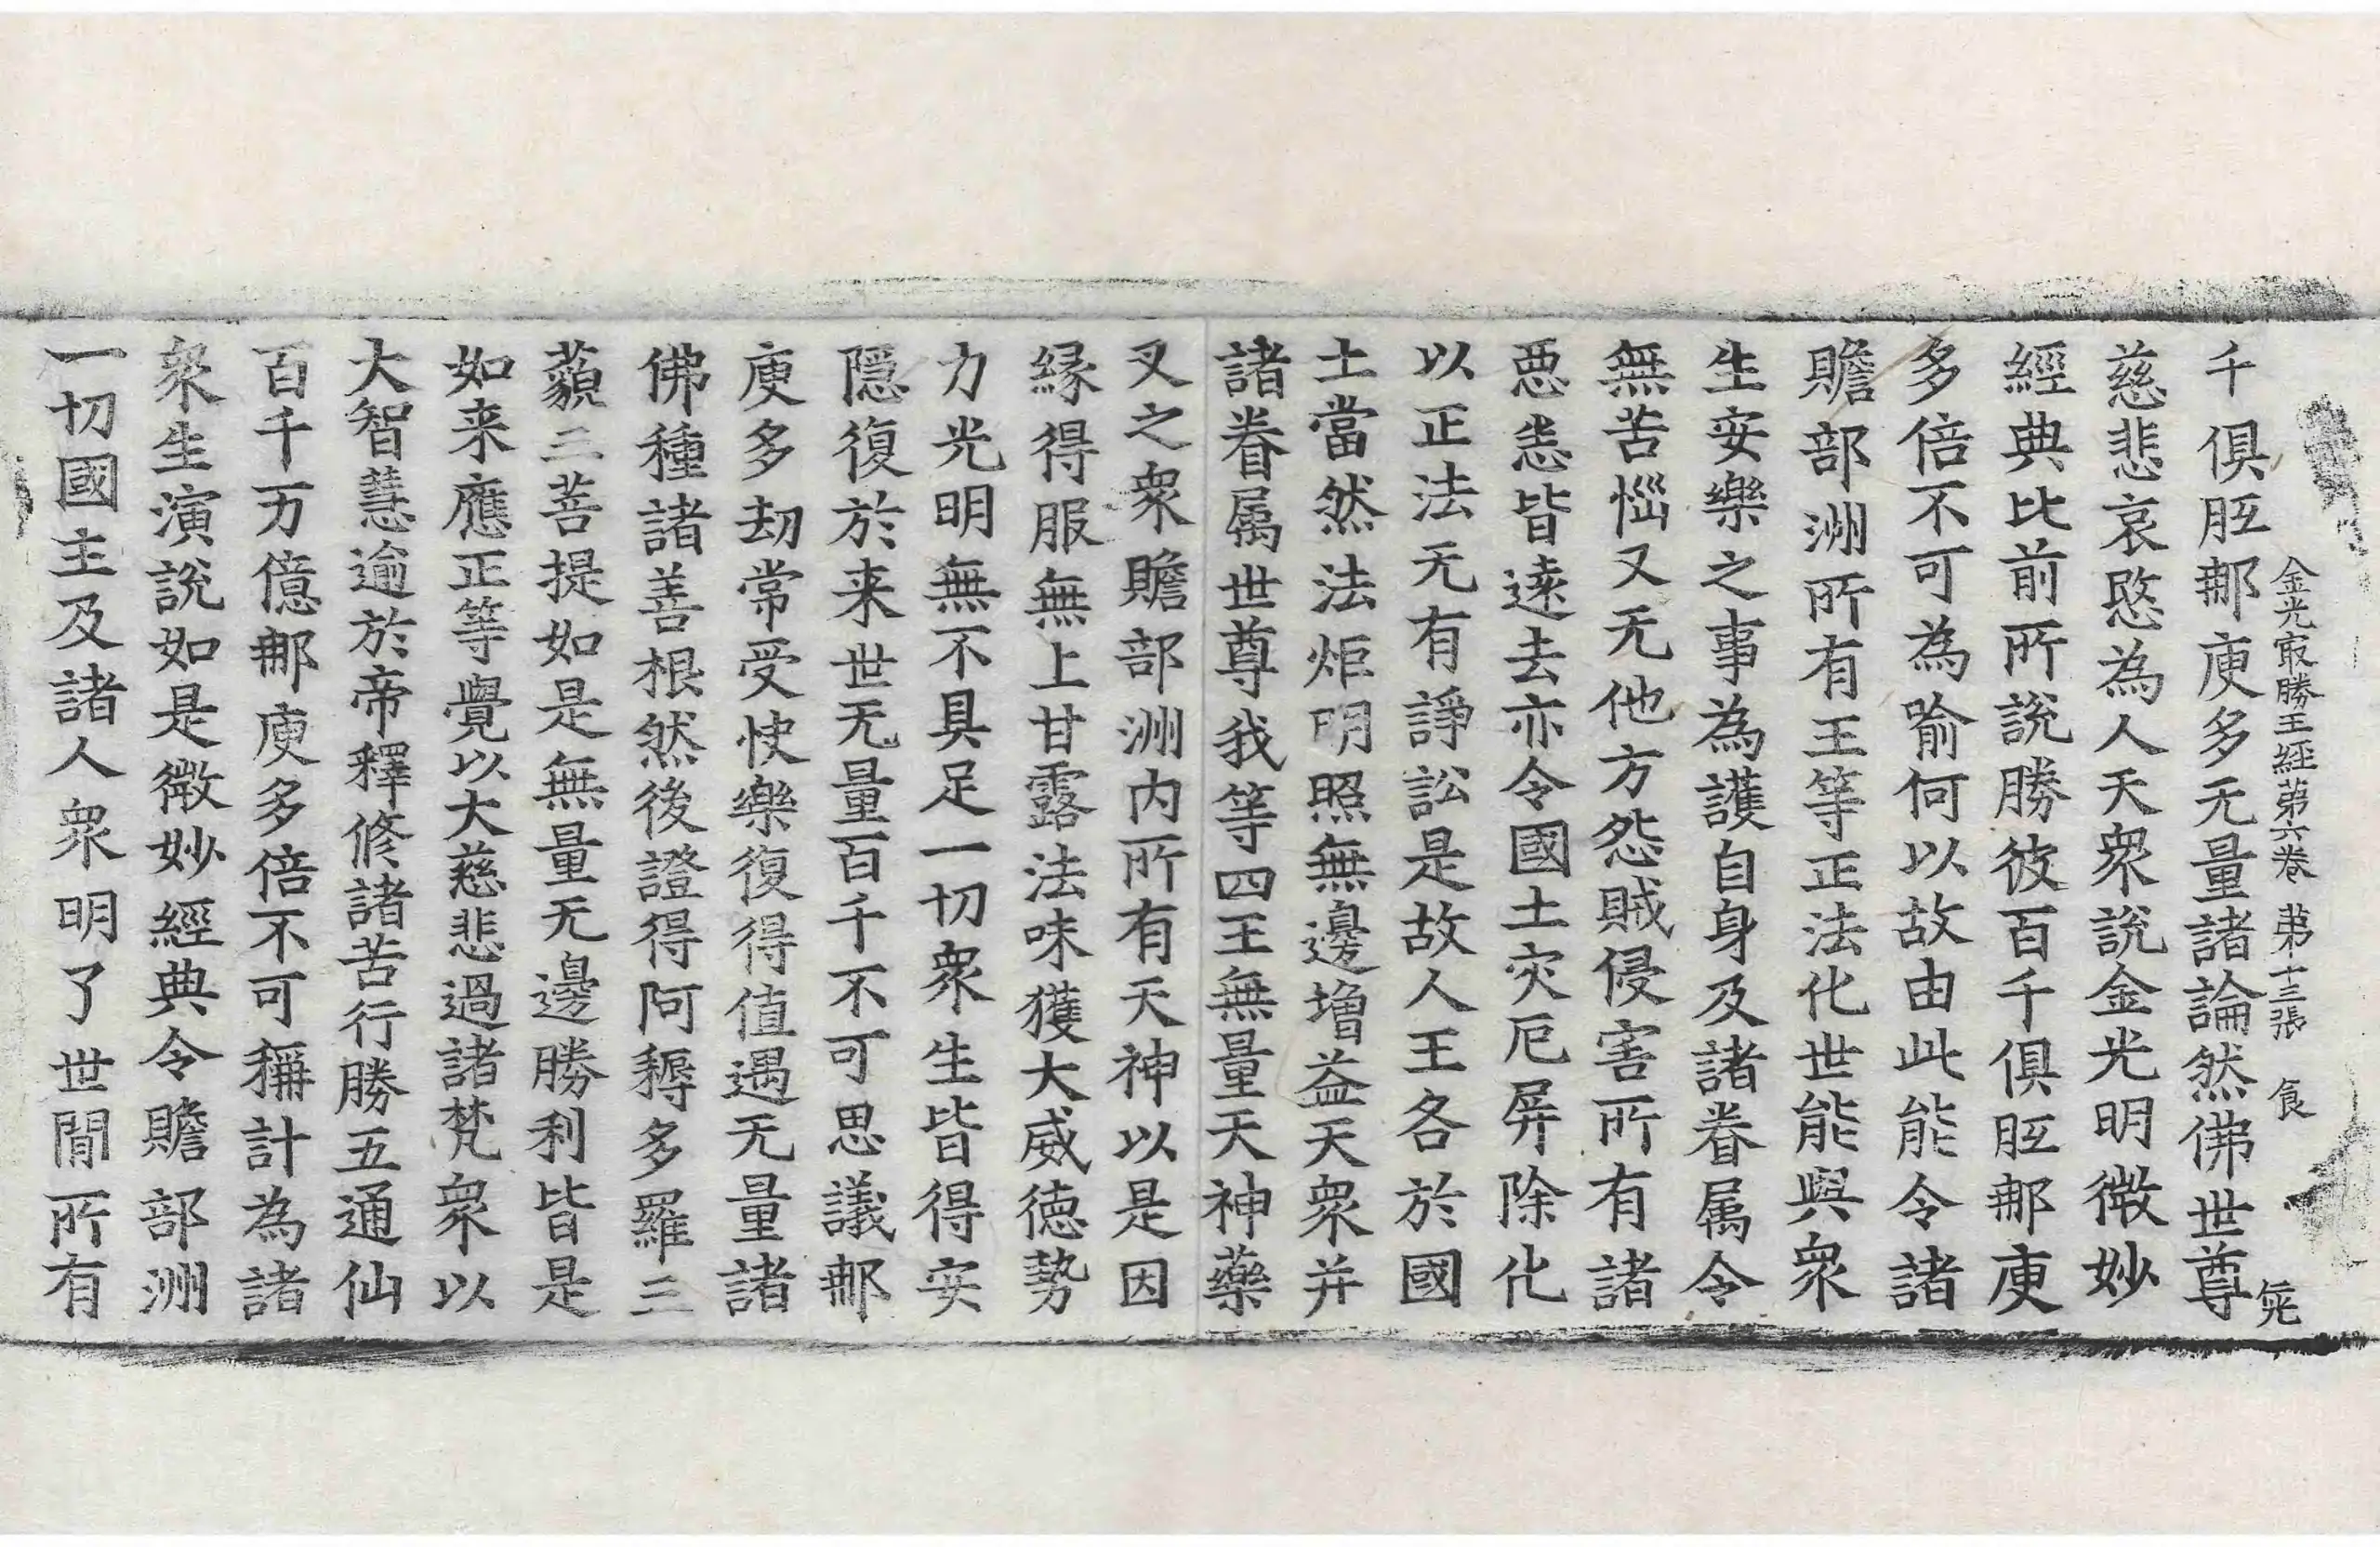 金光㝡勝王經苐六卷 苐十三張 食
千俱胝𨙻庾多无量諸論然佛世尊
慈悲哀愍為人天衆說金光明微妙
經典比前所說勝彼百千俱胝𨙻庾
多倍不可為喻何以故由此能令諸
贍部洲所有王等正法化世能與衆
生安樂之事為護自身及諸眷属令
無苦惱又无他方怨賊侵害所有諸
惡恙皆遠去亦令國土灾厄屏除化
以正法无有諍訟是故人王各於國
土當然法炬明照無邊增益天衆并
諸眷属世尊我等四王無量天神藥
叉之衆贍部洲內所有天神以是因
縁得服無上甘露法味獲大威德勢
力光明無不具足一切衆生皆得安
隱復於来世无量百千不可思議𨙻
庾多劫常受快樂復得值遇无量諸
佛種諸善根然後證得阿耨多羅三
藐三菩提如是無量无邊勝利皆是
如来應正等覺以大慈悲過諸梵衆以
大智慧逾於帝釋修諸苦行勝五通仙
百千万億𨙻庾多倍不可稱計為諸
衆生演說如是微妙經典令贍部洲
一切國主及諸人衆明了世閒所有